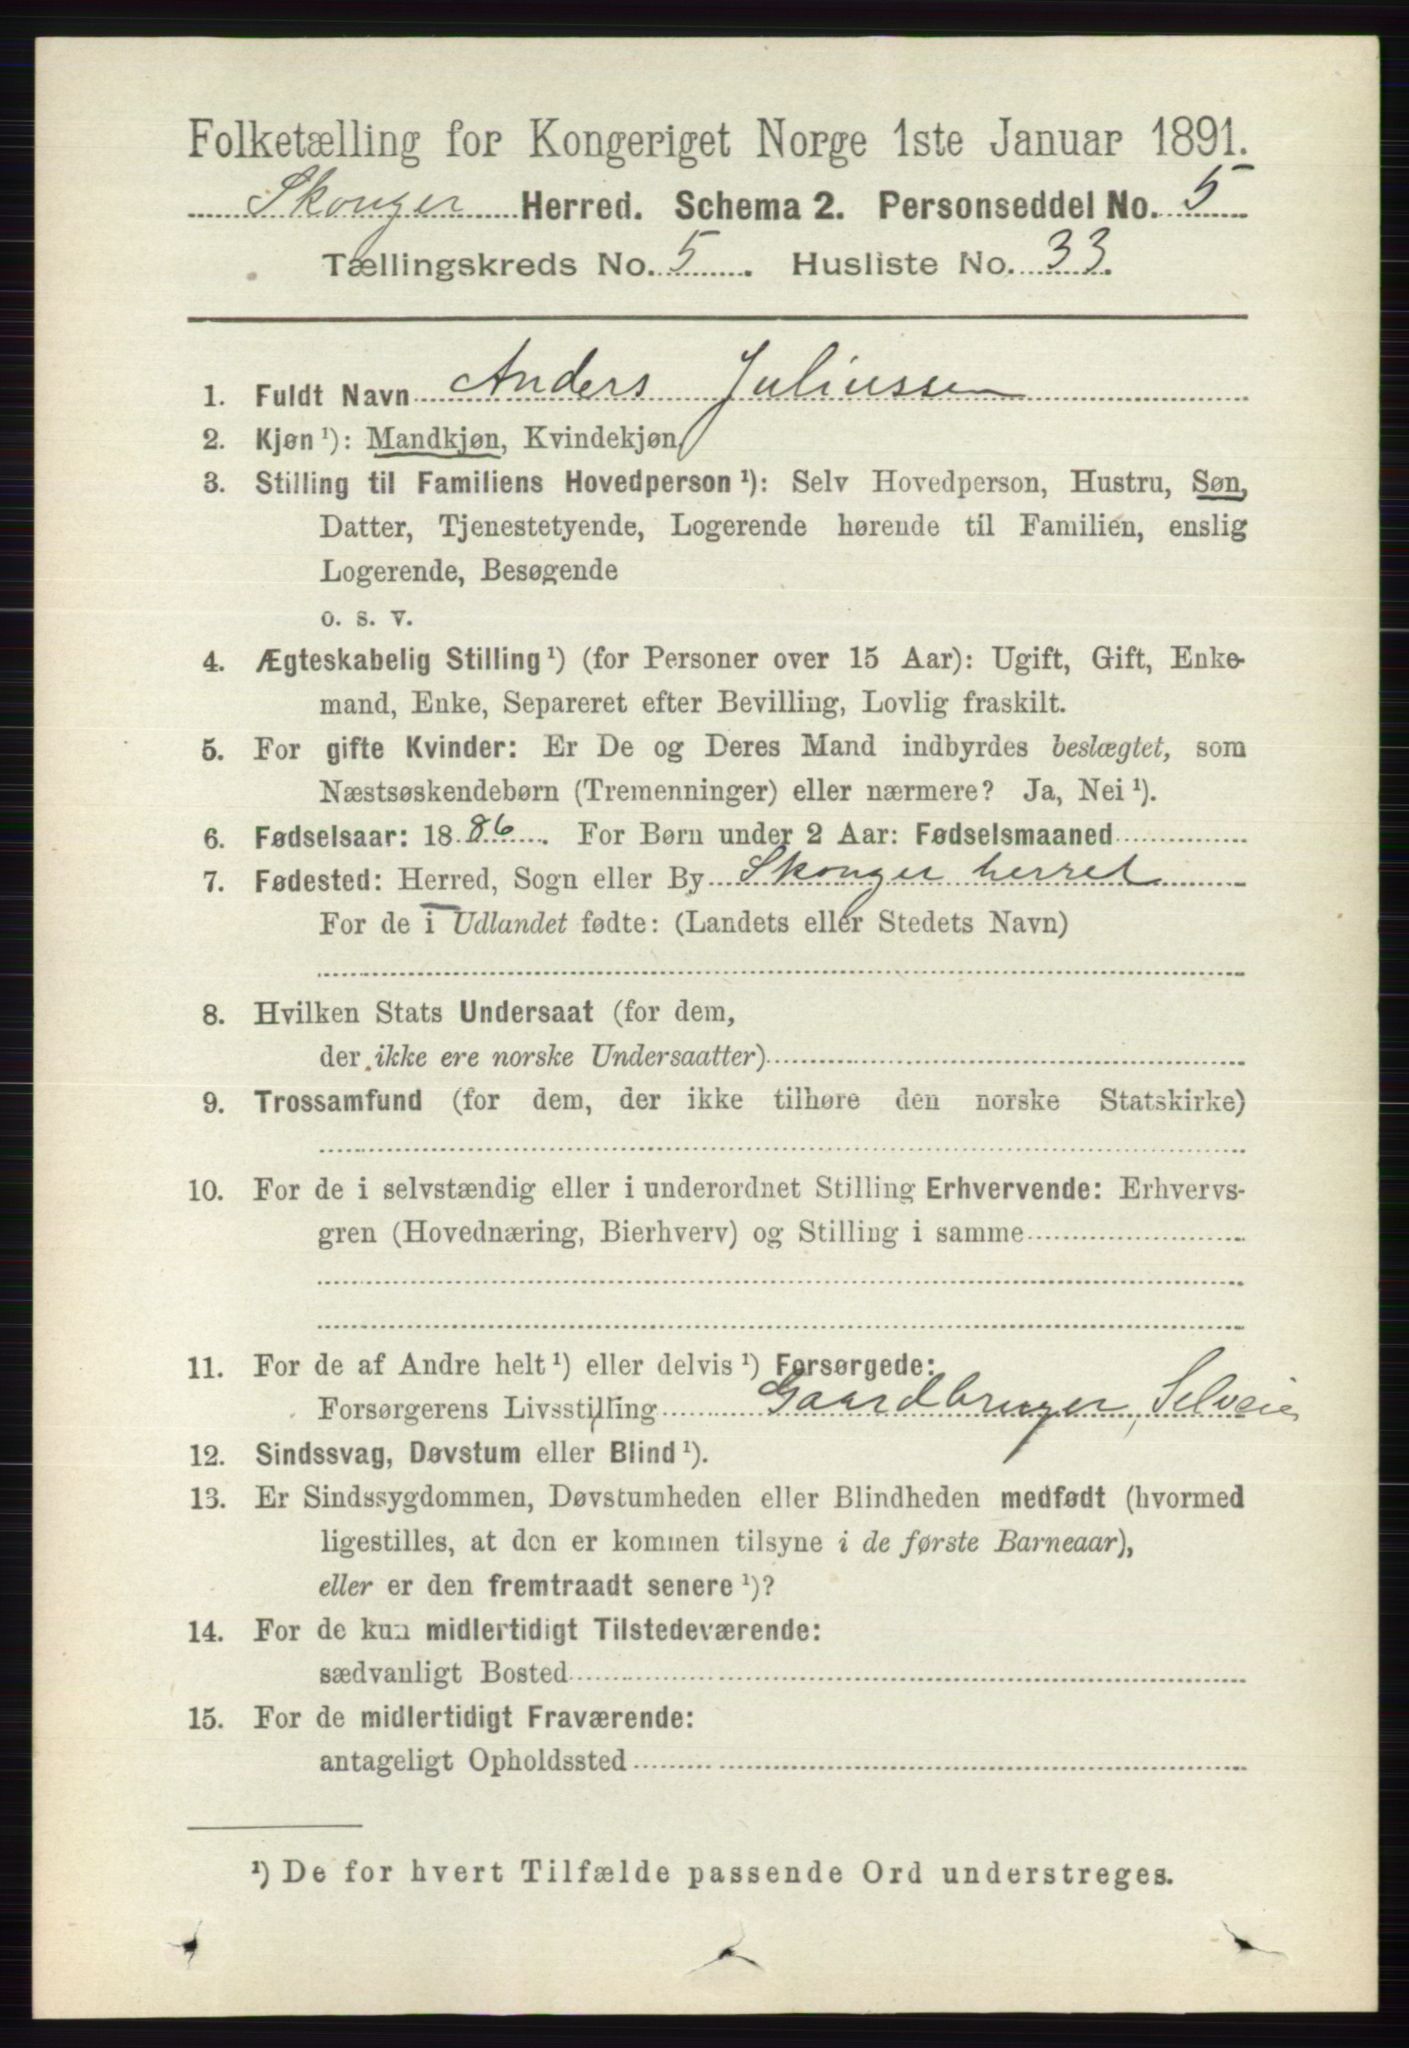 Folketælling for Kongeriget Norge 1ste Januar 1891.
Skouger Herred. Schema 2. Personseddel No. 5
Tællingskreds No. 5. Husliste No. 33.
1. Fuldt Navn Anders Juliussen
2. Kjøn ¹): Mandkjøn, Kvindekjøn
3. Stilling til Familiens Hovedperson ¹): Selv Hovedperson, Hustru, Søn,
Datter, Tjenestetyende, Logerende hørende til Familien, enslig
Logerende, Besøgende
o. s. v.
4. Ægteskabelig Stilling ¹) (for Personer over 15 Aar): Ugift, Gift, Enke-
mand, Enke, Separeret efter Bevilling, Lovlig fraskilt.
5. For gifte Kvinder: Er De og Deres Mand indbyrdes beslægtet, som
Næstsøskendebørn (Tremenninger) eller nærmere? Ja, Nei ¹).
6. Fødselsaar: 1886. For Børn under 2 Aar: Fødselsmaaned
7. Fødested: Herred, Sogn eller By Skouger herret
For de i Udlandet fødte: (Landets eller Stedets Navn)
8. Hvilken Stats Undersaat (for dem,
der ikke ere norske Undersaatter)
9. Trossamfund (for dem, der ikke tilhøre den norske Statskirke)
10. For de i selvstændig eller i underordnet Stilling Erhvervende: Erhvervs-
gren (Hovednæring, Bierhverv) og Stilling i samme
11. For de af Andre helt ¹) eller delvis ¹) Forsørgede:
Forsørgerens Livsstilling Gaardbruger, Selveier
12. Sindssvag, Døvstum eller Blind ¹).
13. Er Sindssygdommen, Døvstumheden eller Blindheden medfødt (hvormed
ligestilles, at den er kommen tilsyne i de første Barneaar),
eller er den fremtraadt senere ¹)?
14. For de kun midlertidigt Tilstedeværende:
sædvanligt Bosted
15. For de midlertidigt Fraværende:
antageligt Opholdssted
¹) De for hvert Tilfælde passende Ord understreges.